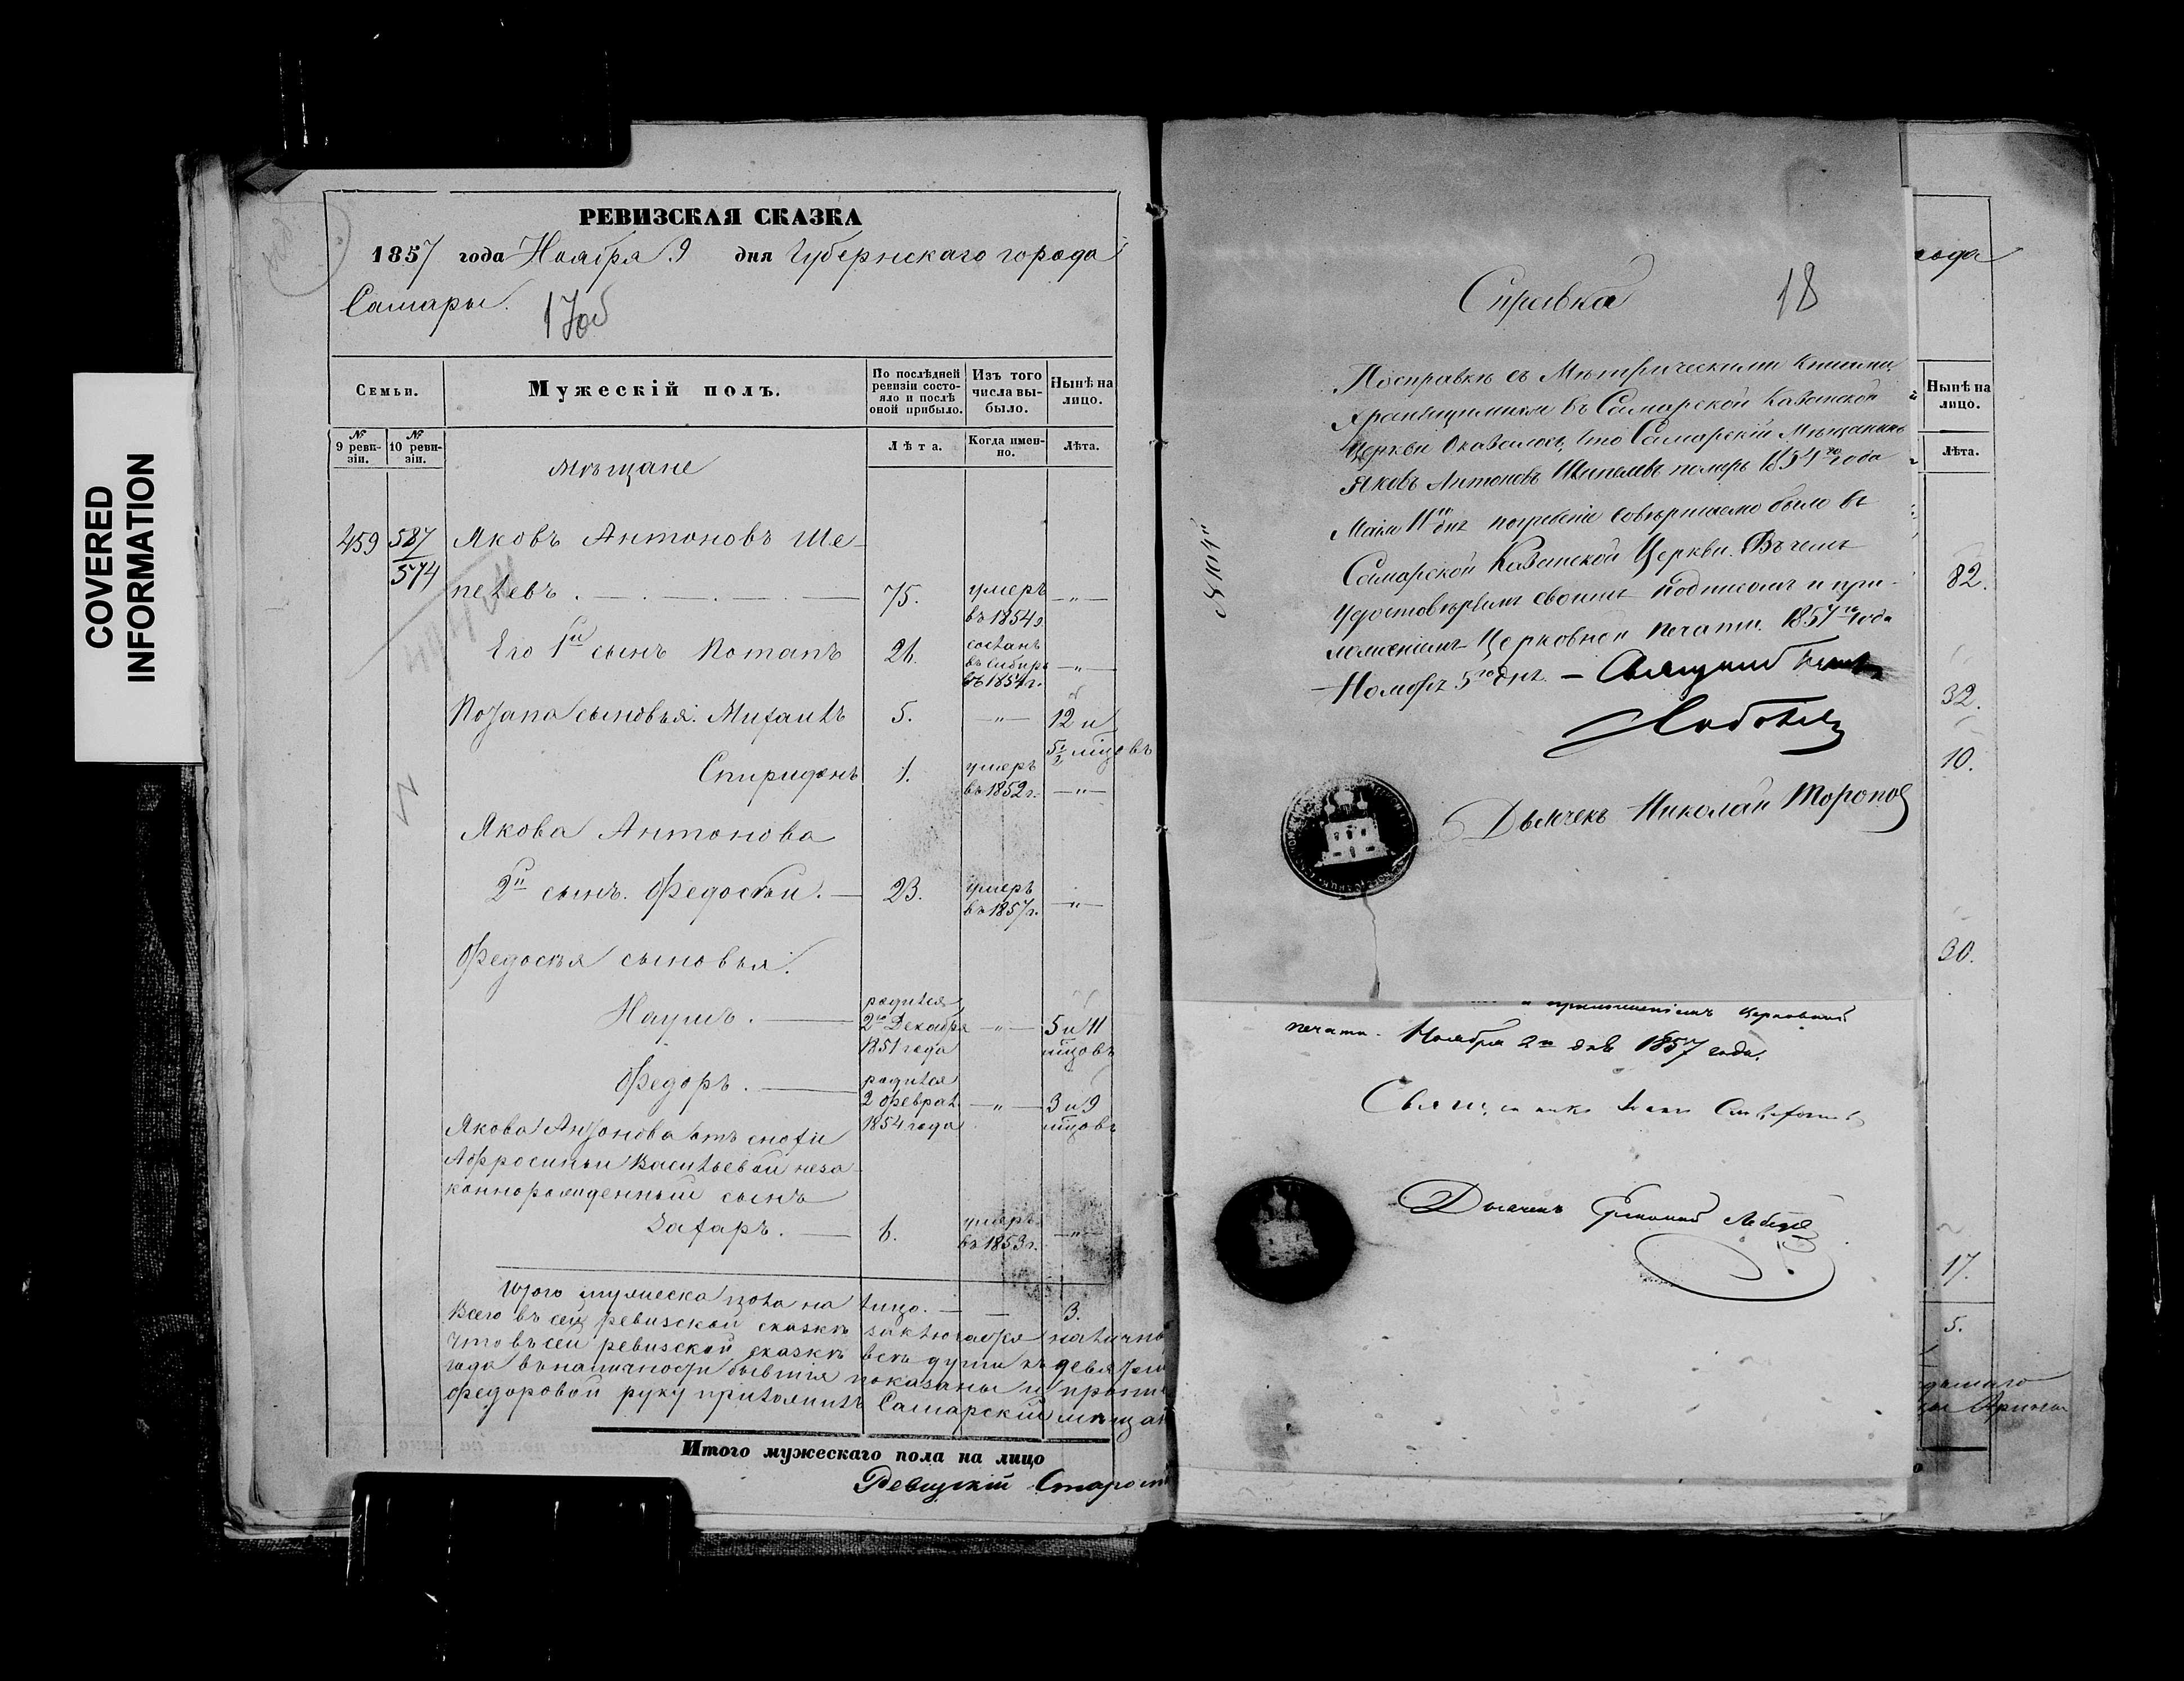 COVERED
INFORMATION
РЕВИЗСКАЯ СКАЗКА
1857 года Ноября 9 дня Губернскаго города
Самары.
17об
Семьи.
Мужескій полъ.
По послѣдней ревизіи состояло и послѣ оной прибыло.
Изъ того числа выбыло.
Нынѣ на лицо.
№ 9 ревизіи.
№ 10 ревизіи.
Лѣта.
Когда именно.
Лѣта.
мѣщане
459 587/574 Яковъ Антоновъ Ше-
пелевъ . 75. умеръ въ 1854 г. — " —
Его 1й сынъ Потапъ 26. сосланъ въ Сибирь въ 1854 г. — " —
Потапа сыновья. Михаилъ 5. — " — 12 и 5½ мцовъ
Спиридонъ 1. умеръ въ 1852 г. — " —
Якова Антонова
2й сынъ. Федосѣй. — 23. умеръ въ 1857 г. — " —
Федосѣя сыновья.
Наумъ. — родился 2го Декабря 1851 года — " — 5 и 11 мцовъ
Федоръ. — родился 2 Феврал. 1854 года — " — 3 и 9 мцовъ
Якова Антонова отъ снохи
Афросиньи Васильевой неза-
коннорожденный сынъ
Захаръ. — 6. умеръ въ 1853 г. — " —
Итого мужеска пола на лицо. — — 3.
Всего въ сей ревизской сказкѣ заключается налично
что въ сей ревизской сказкѣ всѣ души къ девятой
года въ наличности бывшія показаны и
Федоровой руку приложилъ Самарскій мѣщан
Итого мужескаго пола на лицо
Ревизскій Старост
Справка
18
По справкѣ съ Метрическими книгами
хранящимися въ Самарской Казанской
Церкви Оказалось, что Самарскій Мѣщанинъ
Яковъ Антоновъ Шепелевъ померъ 1854го года
Маія 11 дня погребеніе совершаемо было въ
Самарской Казанской Церкви. Въ чемъ
удостовѣряемъ своимъ подписомъ и при-
ложеніемъ Церковной печати. 1857го года
Ноября 5го дня. —
Дьячекъ Николай Торопов
приложеніемъ церковной
печати. Ноября 2го дня 1857 года.
Священникъ Іоаннъ
Дьячекъ
года
Нынѣ на лицо.
Лѣта.
82.
32.
10.
30.
17.
5.